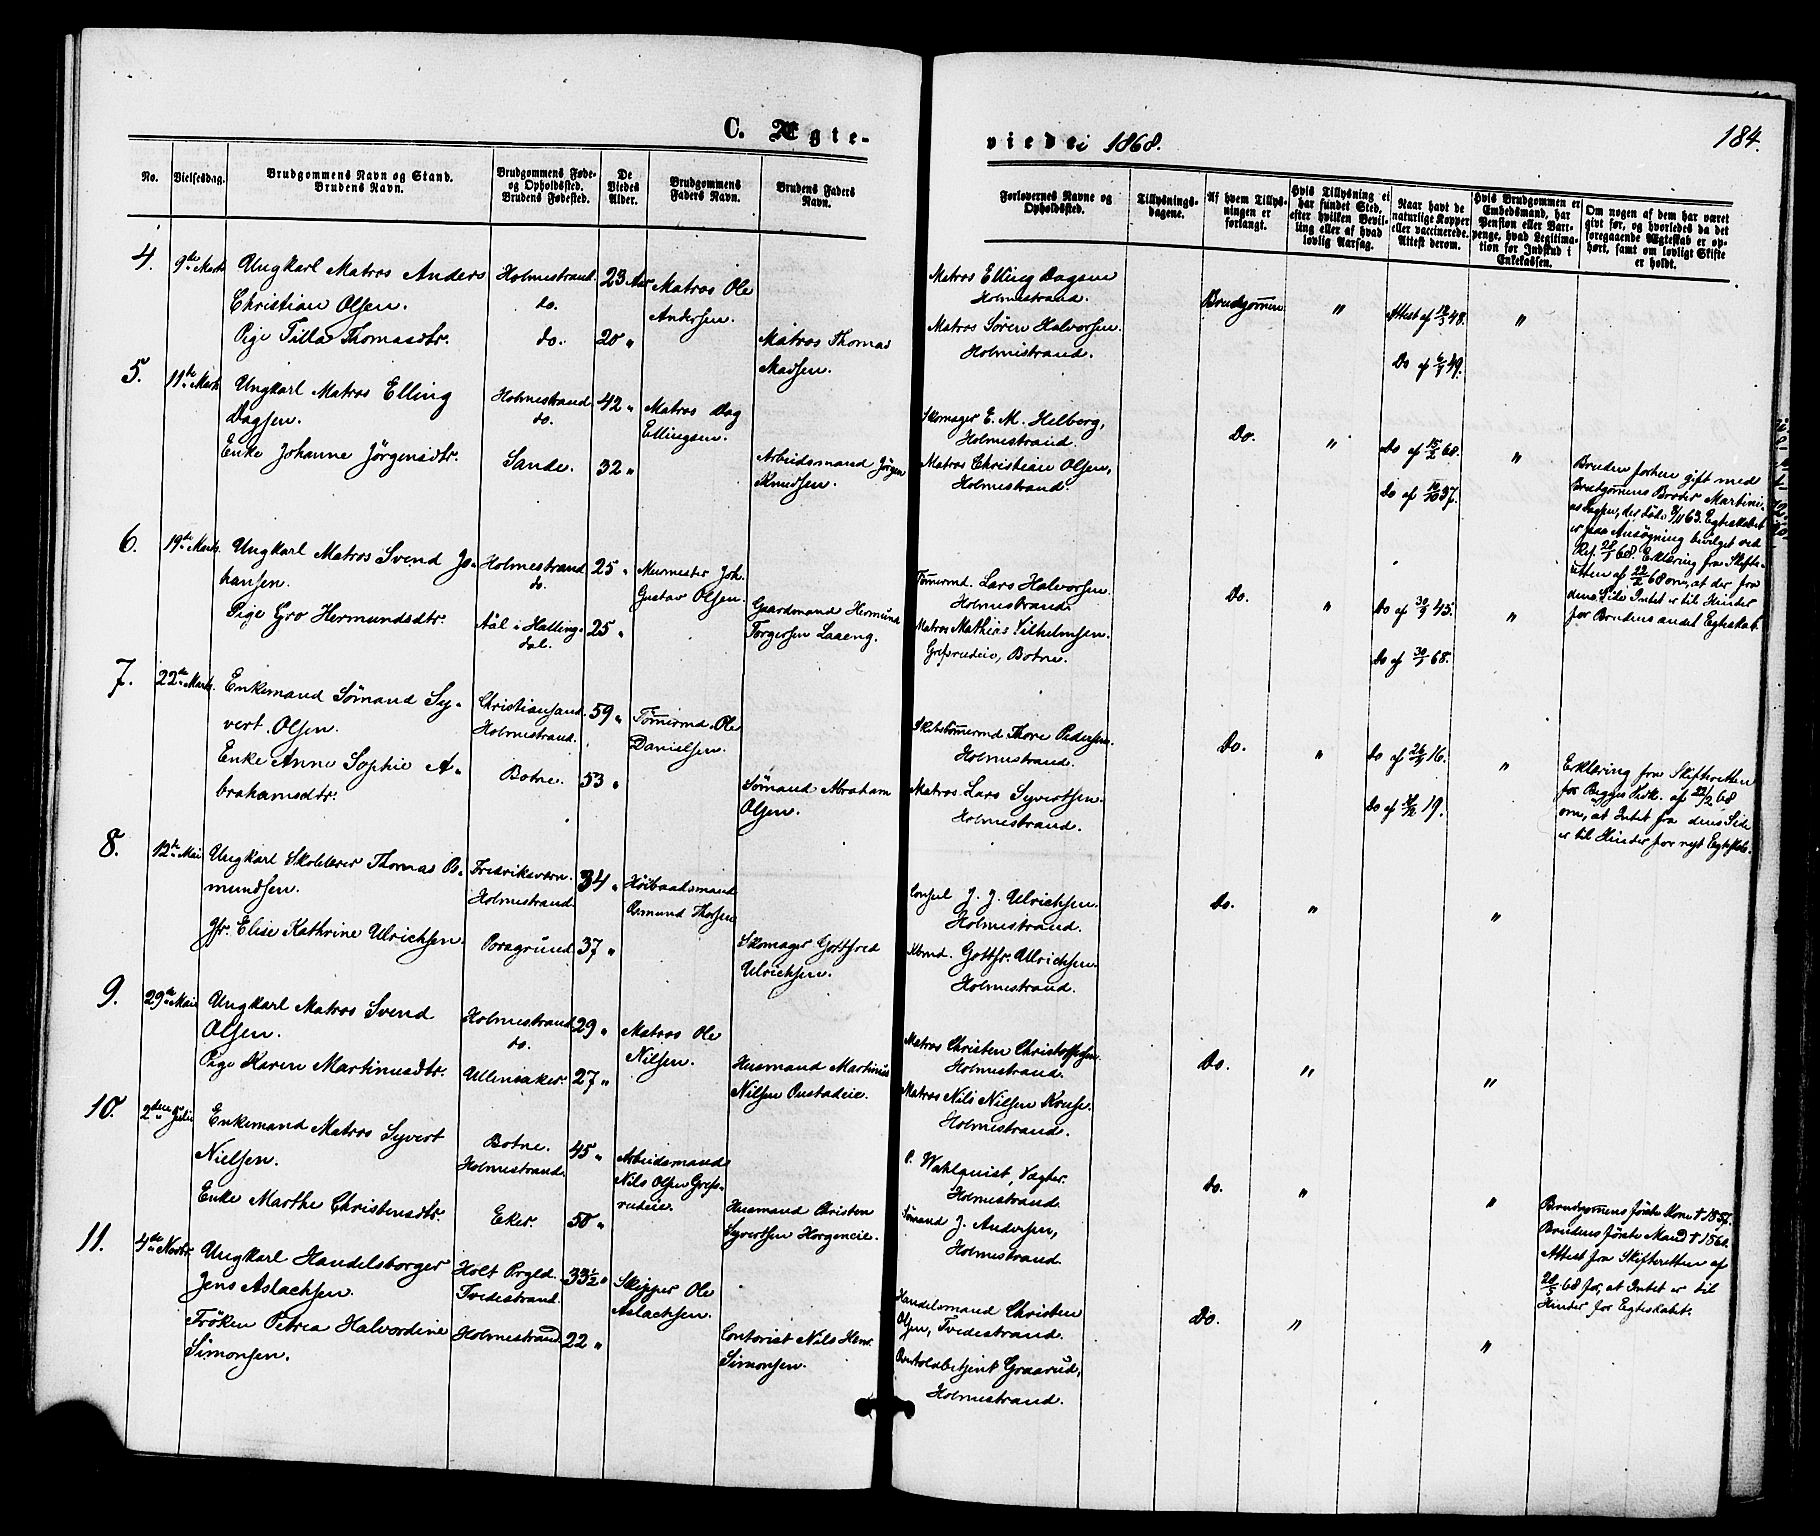 C. Ægte-
viede i 1868.
184.
No.
Vielsesdag.
Brudgommens Navn og Stand.
Brudens Navn.
Brudgommens Føde-
og Opholdssted.
Brudens Fødested.
De
Viedes
Alder.
Brudgommens
Faders Navn.
Brudens Faders
Navn.
Forlovernes Navne og
Opholdssted.
Tillysnings-
dagene.
Af hvem Tillys-
ningen er
forlangt.
Hvis Tillysning ei
har fundet Sted,
efter hvilken Bevil-
ling eller af hvad
lovlig Aarsag.
Naar havt de
naturlige Kopper
eller vaccinerede.
Attest derom.
Hvis Brudgommen er
Embedsmand, har
Pension eller Vart-
penge, hvad Legitima-
tion for Indskud i
Enkekassen.
Om nogen af dem har været
gift før, og hvorledes da det
foregaaende Ægteskab er op-
hørt, samt om lovligt Skifte
er holdt.
4.
9de Marts
Ungkarl Matros Anders
Christian Olsen.
Pige Tilla Thomasdtr.
Holmestrand.
do.
do.
23 Aar
20 "
Matros Ole
Andersen.
Matros Thomas
Madsen.
Matros Elling Dagsen
Holmestrand.
Matros Søren Halvorsen.
Holmestrand.
Brudgommen
"
Attest af 48.
Do af 49.
"
5.
11te Marts
Ungkarl Matros Elling
Dagsen.
Enke Johanne Jørgensdtr.
Holmestrand
do.
Sande.
42 "
32 "
Matros Dag
Ellingsen.
Arbeidsmand Jørgen
Knudsen.
Skomager E. M. Helberg,
Holmestrand.
Matros Christian Olsen,
Holmestrand.
Do.
"
Do af 15/2 68.
Do af 37.
"
Bruden forhen gift med
Brudgommens Broder Martini-
us Dagsen, der døde 8/11 63. Egteskabet
er paa Ansøgning bevilget ved
Res. 28/1 68. Erklæring fra Skifte-
retten af 22/2 68 om, at der fra
dens Side Intet er til Hinder
for Brudens andet Egteskab.
6.
19de Marts
Ungkarl Matros Svend Jo-
hansen.
Pige Gro Hermundsdtr.
Holmestrand
do.
Aal i Halling-
dal.
25 "
25 "
Murmester Joh.
Gustav Olsen.
Gaardmand Hermund
Torgersen Laaeng.
Tømmermd. Lars Halvorsen.
Holmestrand.
Matros Mathias Vilhelmsen.
Grefsrudeie, Botne.
Do.
"
Do af 45.
Do af 68.
"
7.
22de Marts
Enkemand Sømand Sy-
vert Olsen.
Enke Anne Sophie A-
brahamsdtr.
Christiansand.
Holmestrand.
Botne.
59 "
53 "
Tømmermd. Ole
Danielsen.
Sømand Abraham
Olsen.
Skibstømmermd Thore Pedersen.
Holmestrand.
Matros Lars Syvertsen.
Holmestrand.
Do.
"
Do af 16.
Do af 19.
"
Erklæring fra Skifteretten
for Begges Vedk. af 22/2 68
om, at Intet fra dens Side
er til Hinder for nyt Egteskab.
8.
12te Mai
Ungkarl Skolelærer Thomas O-
mundsen.
Jfr. Elise Kathrine Ulrichsen.
Fredriksværn.
Holmestrand.
Porsgrund
34 "
37 "
Høibaadsmand
Omund Thorsen
Skomager Gottfred
Ulrichsen.
Consul J. J. Ulrichsen.
Holmestrand.
Kbmd. Gottfr. Ullrichsen.
Holmestrand.
Do.
"
"
9.
29de Mai
Ungkarl Matros Svend
Olsen.
Pige Karen Martinusdtr.
Holmestrand
do.
Ullensaker.
29 "
27 "
Matros Ole
Nilsen.
Husmand Martinus
Nilsen Onstadeie.
Matros Christen Christophersen.
Holmestrand.
Matros Nils Nilsen Kruse.
Holmestrand.
Do.
"
"
10.
2den Juli
Enkemand Matros Syvert
Nielsen.
Enke Marthe Christensdtr.
Botne.
Holmestrand.
Eker
45 "
50 "
Arbeidsmand
Nils Olsen Grefs-
rudeie.
Husmand Christen
Syvertsen Horgeneie.
P. Wahlquist, Vægter.
Holmestrand.
Sømand J. Andersen,
Holmestrand.
Do.
"
"
Brudgommens første Kone † 1857.
Brudens første Mand † 1860.
Attest fra Skifteretten af
28/5 68 for, at Intet er til
Hinder for Egteskabet.
11.
4de Novbr.
Ungkarl Handelsborger
Jens Aslachsen.
Frøken Petrea Halvordine
Simonsen.
Holt Prgld.
Tvedestrand.
Holmestrand
33 1/2 "
22 "
Skipper Ole
Aslachsen.
Contorist Nils Henr.
Simonsen.
Handelsmand Christen
Olsen, Tvedestrand.
Overtoldbetjent Graarud,
Holmestrand.
Do.
"
"